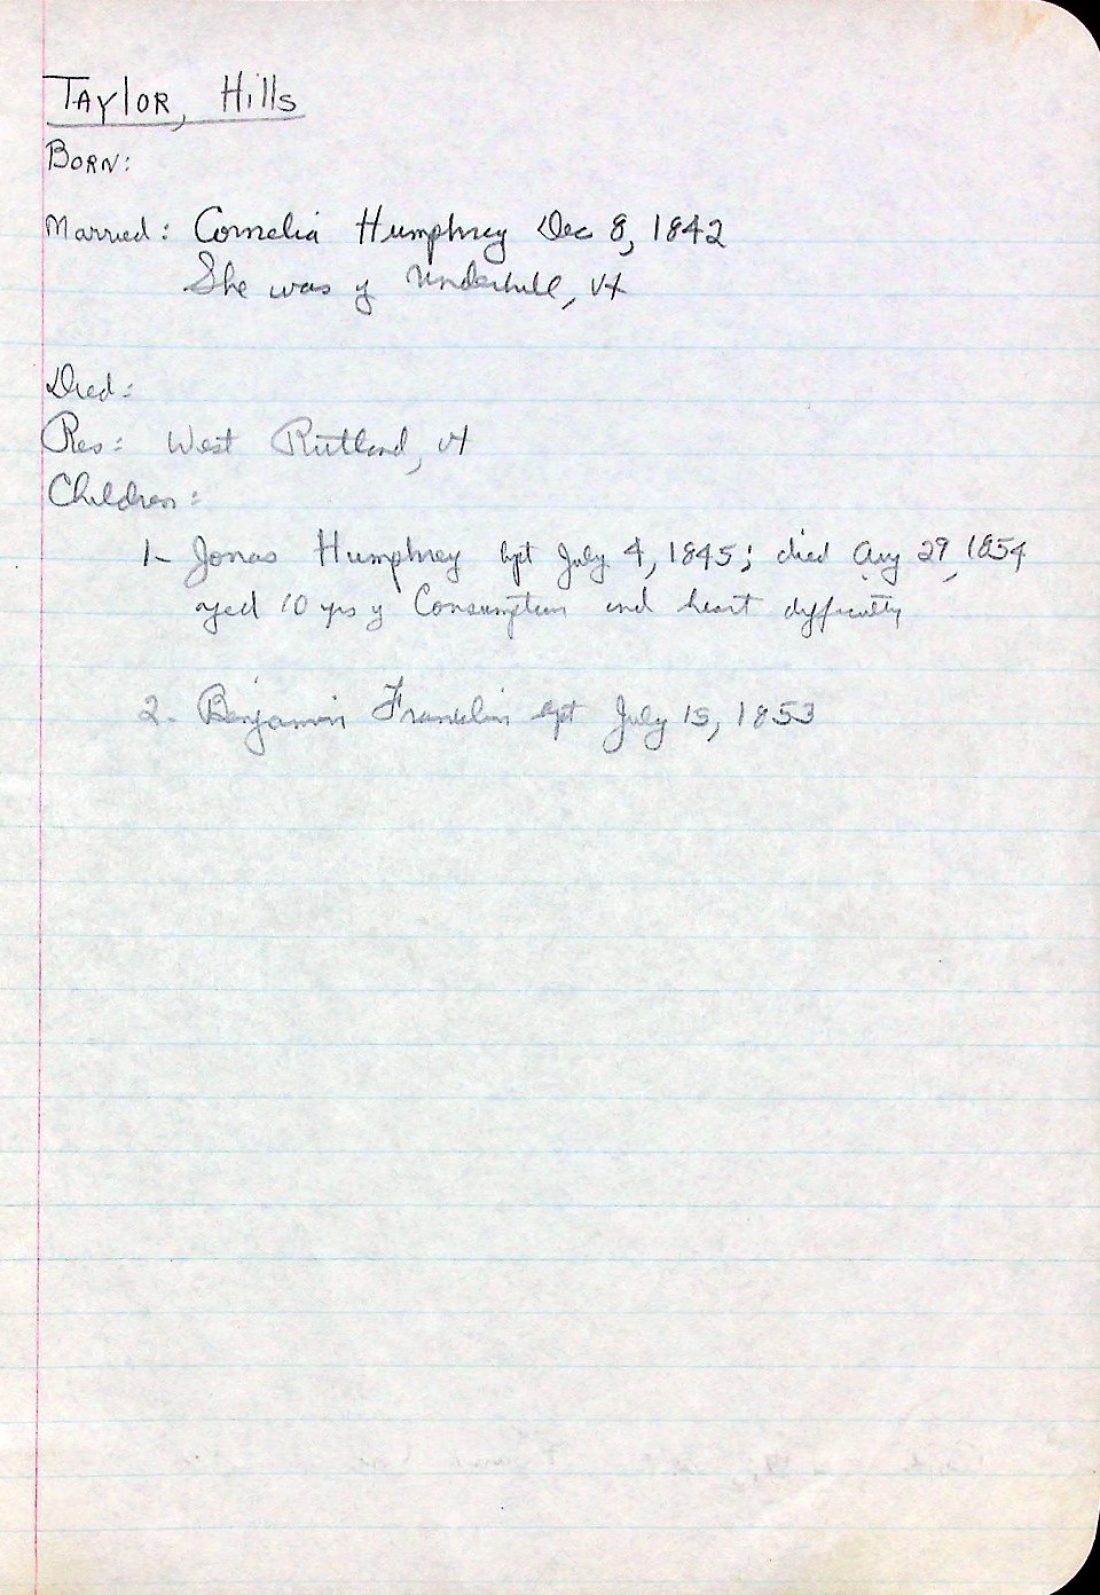 TAYLOR, Hills
BORN:
Married: Cornelia Humphrey Dec 8, 1842
She was of Underhill, Vt
Died:
Res: West Rutland, Vt
Children:
1- Jonas Humphrey bpt July 4, 1845; died Aug 29, 1854
aged 10 yrs of Consumption and heart difficulty
2- Benjamin Franklin bpt July 15, 1853